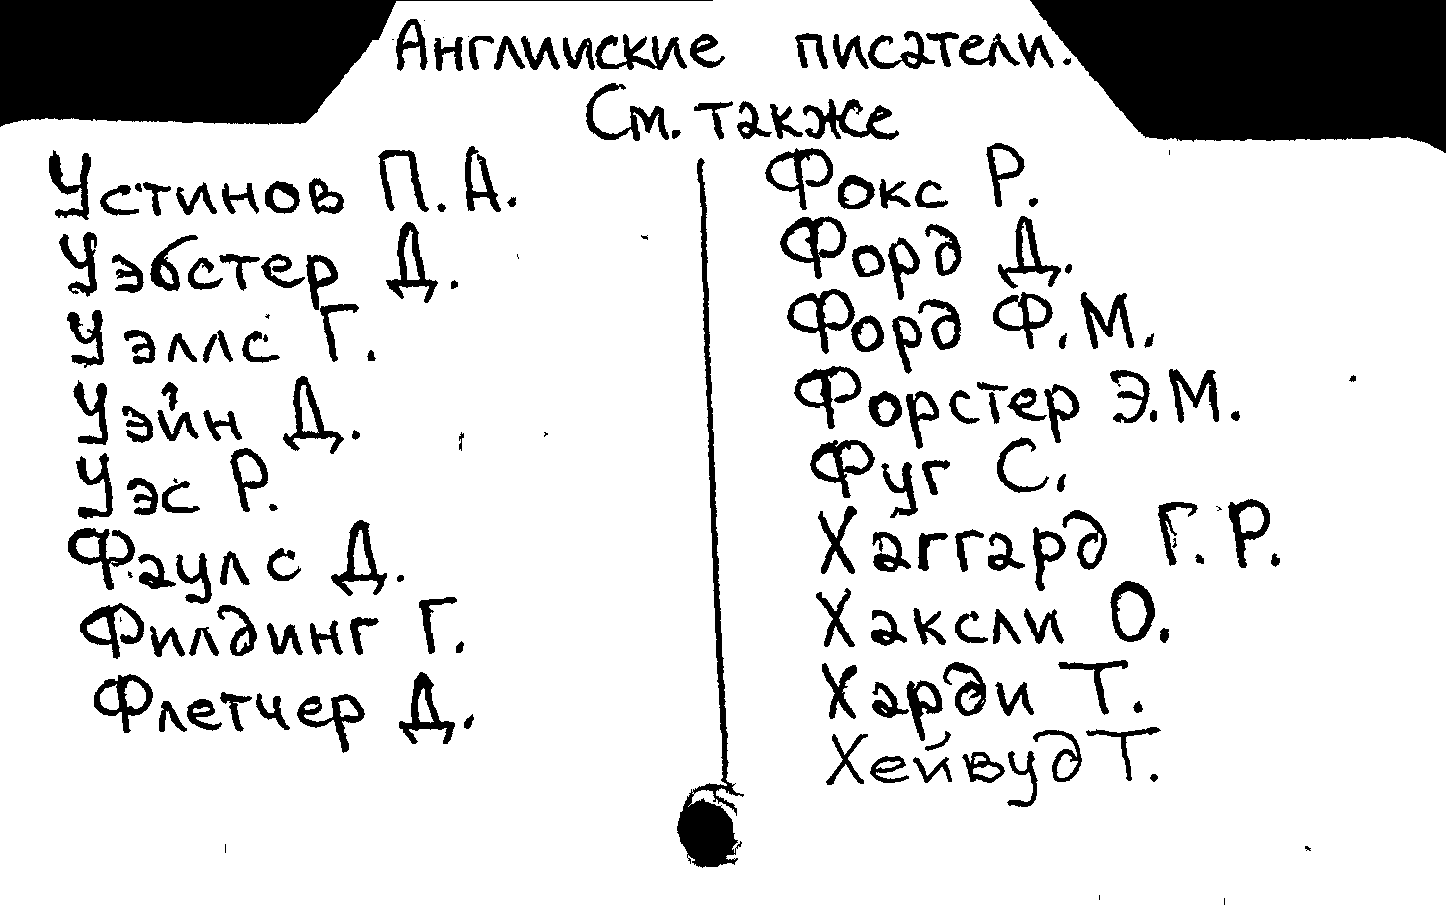 Английские писатели.
См. также
Устинов П. А.
Уэбстер Д.
Уэллс Г.
Уэйн Д.
Уэс Р.
Фаулс Д.
Филдинг Г.
Флетчер Д.
Фокс Р.
Форд Д.
Форд Ф. М.
Форстер Э. М.
Фуг С.
Хаггард Г. Р.
Хаксли О.
Харди Т.
Хейвуд Т.